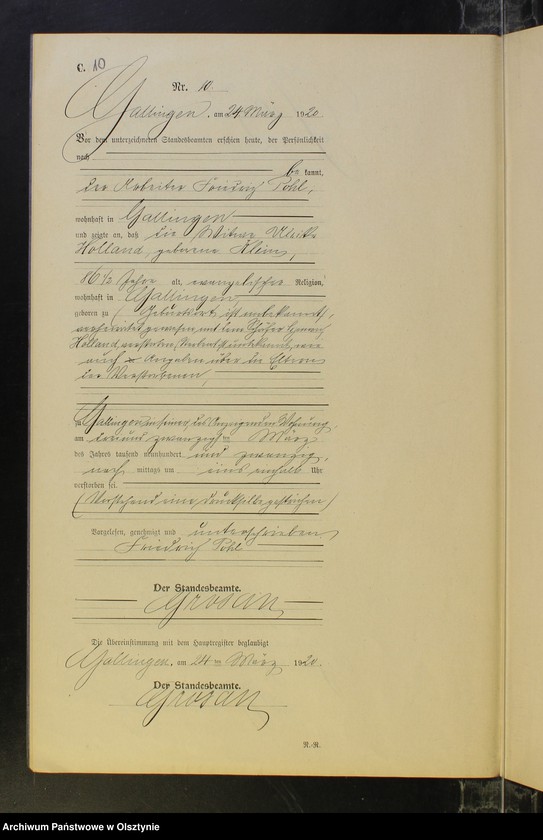 C. 10
Nr. 10.
Gallingen, am 24. März 1920
Vor dem unterzeichneten Standesbeamten erschien heute, der Persönlichkeit
nach
be kannt,
der Arbeiter Friedrich Pohl,
wohnhaft in Gallingen
und zeigte an, daß die Witwe
Holland, geborene Klein,
86 1/2 Jahre alt, evangelischer Religion,
wohnhaft in Gallingen,
geboren zu (Geburtsort ist unbekannt),
verheiratet gewesen mit dem
Holland, verstorben, unbekannt, wie
auch Angaben über die Eltern
der Verstorbenen,
zu Gallingen in seiner des Anzeigenden Wohnung,
am drei und zwanzigsten März
des Jahres tausend neunhundert und zwanzig,
nach mittags um eineinhalb Uhr
verstorben sei.
(Vorstehend eine Druckselbe gestrichen)
Vorgelesen, genehmigt und unterschrieben
Friedrich Pohl
Der Standesbeamte.
Die Übereinstimmung mit dem Hauptregister beglaubigt
Gallingen, am 24ten März 1920.
Der Standesbeamte.
R.-R.
Archiwum Państwowe w Olsztynie